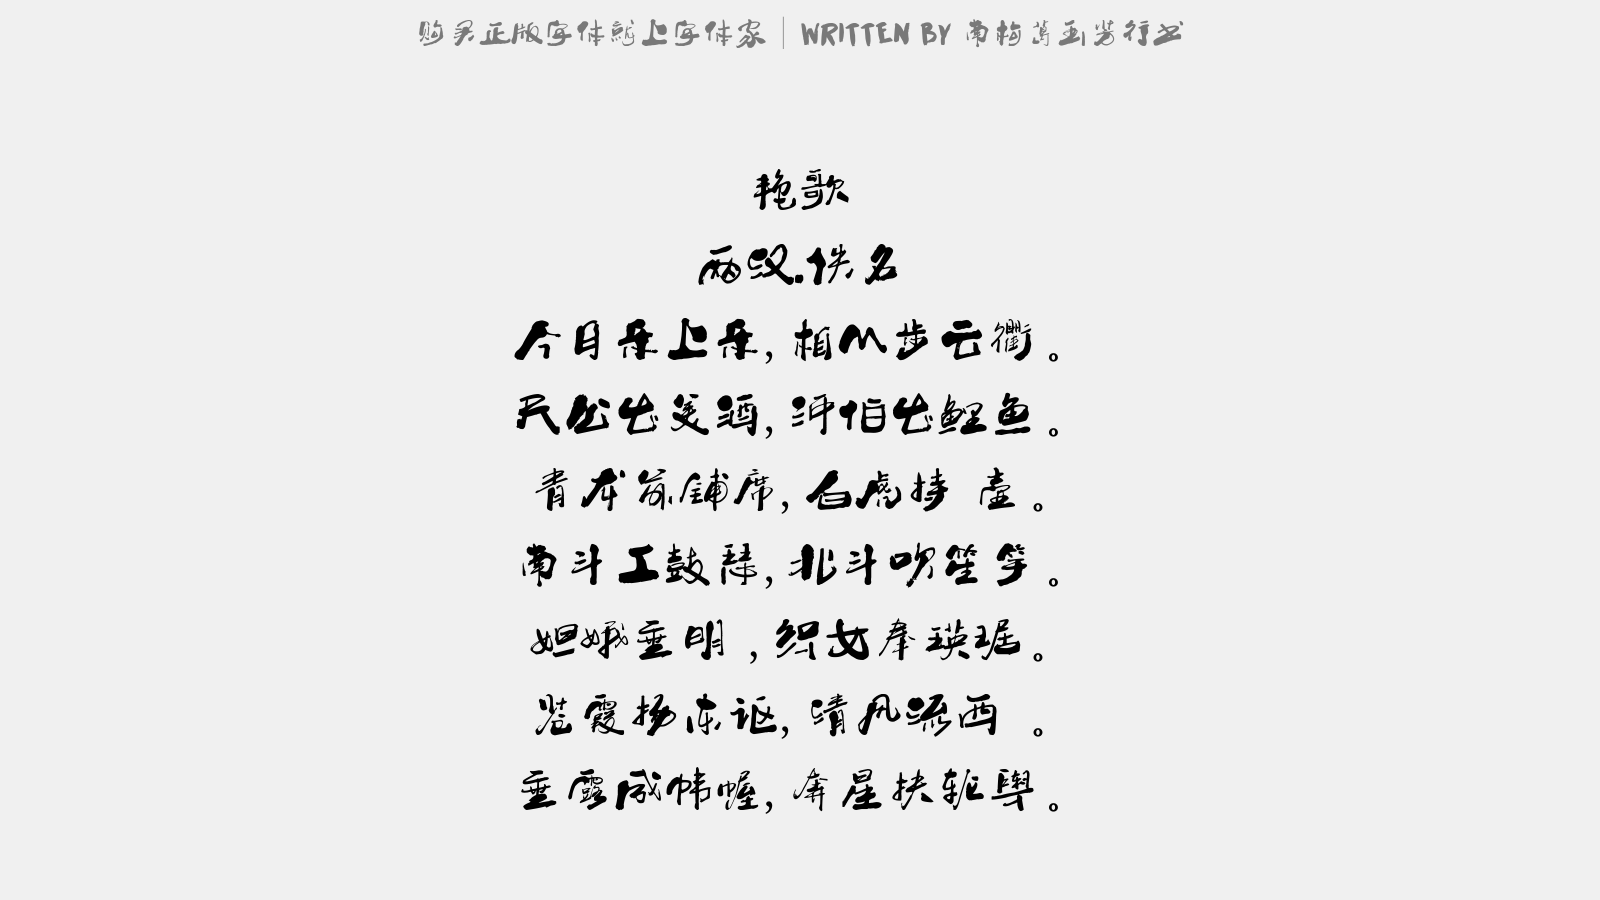 购买正版字体就上字体家 | WRITTEN BY 南构葛玉芳行书
艳歌
两汉.佚名
今日乐上乐，相从步云衢。
天公出美酒，河伯出鲤鱼。
青龙前铺席，白虎持 壶。
南斗工鼓瑟，北斗吹笙竽。
妲娥垂明 ，织女奉瑛琚。
苍霞扬东讴，清风流西 。
垂露成帏幄，奔星扶轮舆。